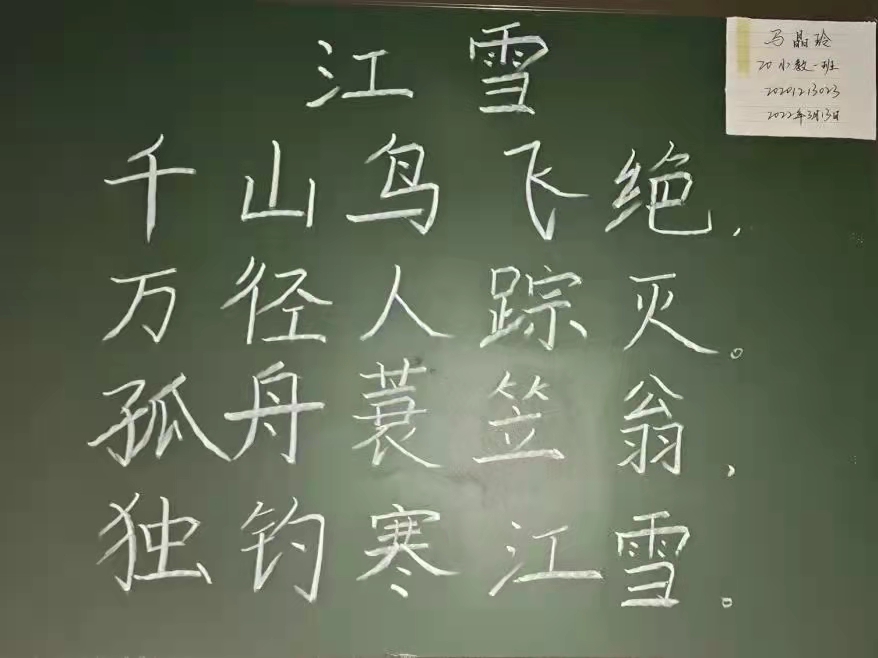 江雪
千山鸟飞绝，
万径人踪灭。
孤舟蓑笠翁，
独钓寒江雪。
马晶玲
20小教一班
20201213023
2022年3月13日